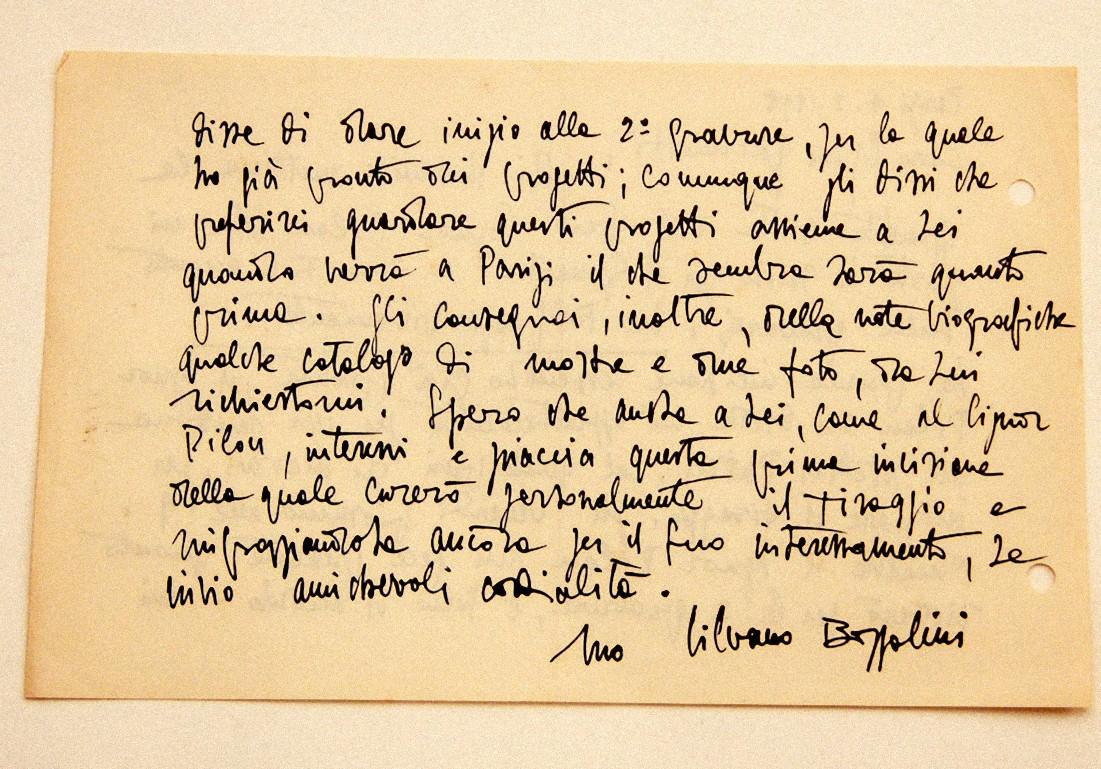 disse di dare inizio alla 2ª gravure, per la quale
ho già pronto dei progetti; comunque gli dissi che
preferirei guardare questi progetti assieme a Lei
quando verrà a Parigi il che sembra sarà quanto
prima. Gli consegnai, inoltre, delle note biografiche
qualche catalogo di mostre e due foto, da Lui
richiestomi. Spero che anche a Lei, come al Signor
Dilou, interessi e piaccia questa prima incisione
della quale curerò personalmente il tiraggio e
ringraziandola ancora per il Suo interessamento, Le
invio amichevoli cordialità.
Suo Silvano Bozzolini